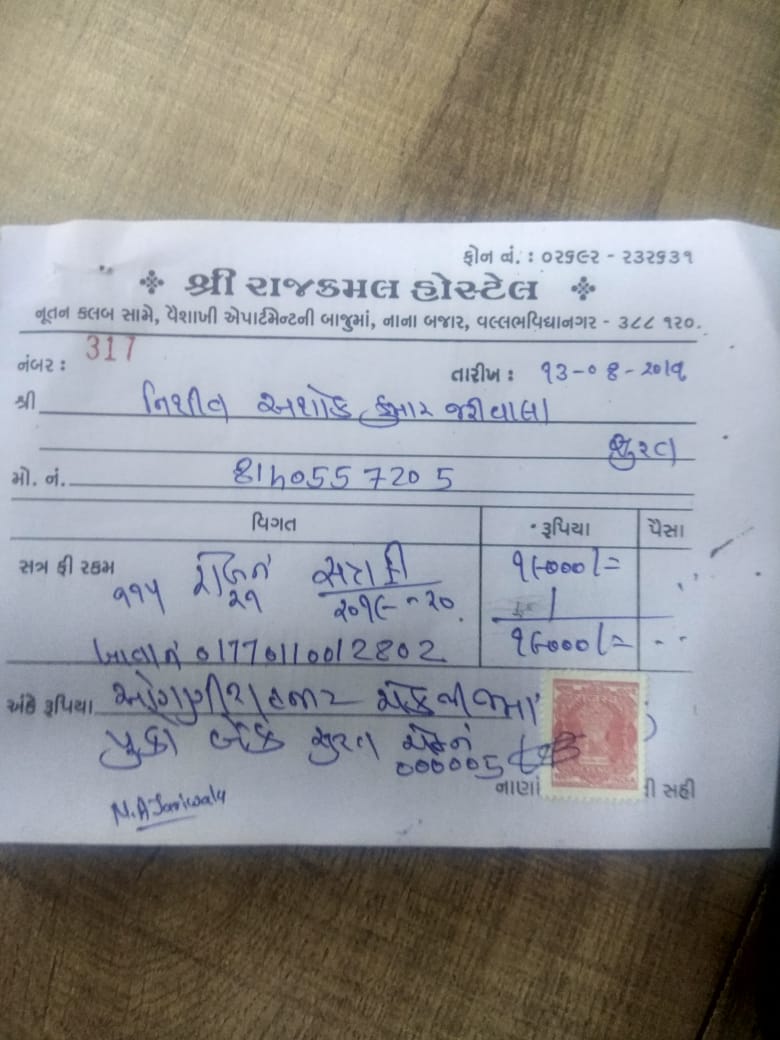 ફોન નં. : ૦૨૬૯૨ - ૨૩૨૬૩૧
શ્રી રાજકમલ હોસ્ટેલ
નૂતન કલબ સામે, વૈશાખી એપાર્ટમેન્ટની બાજુમાં, નાના બજાર, વલ્લભવિદ્યાનગર - ૩૮૮ ૧૨૦.
નંબર : 317
તારીખ : ૧૩-૦૪-૨૦૧૯
શ્રી નિશીત અશોક કુમાર જરીવાલા
સુરત
મો. નં. 8140557205
વિગત રૂપિયા પૈસા
સત્ર ફી રકમ ૧૧૫ ૨૧ સત્ર ફી ૧૯૦૦૦/=
૨૦૧૯-૨૦
ખાતાનં 01770110012802 ૧૯૦૦૦/=
અંકે રૂપિયા ઓગણીસ હજાર
યુકો બેંક સુરત ચેકનં
000005
નાણાં ની સહી
N.A Jariwala